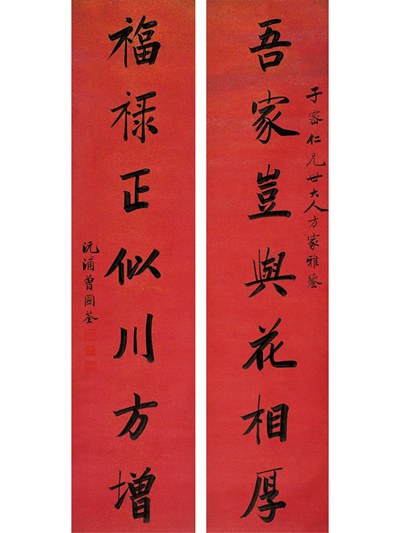 吾家豈與花相厚
子密仁兄世大人方家雅鑒
福祿正似川方增
沅浦曾國荃